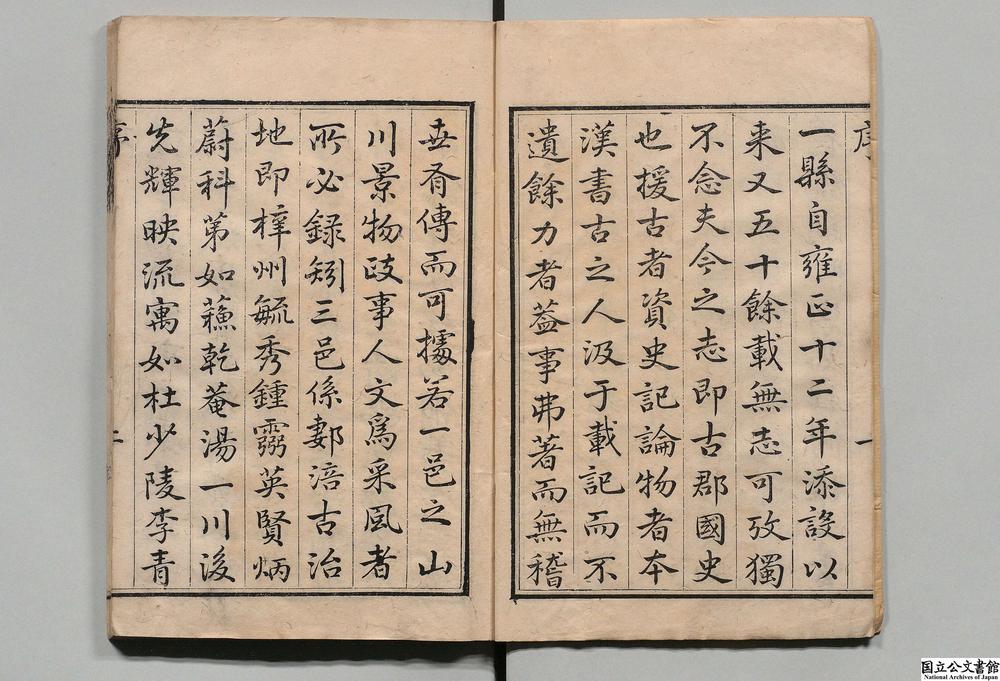 序
一縣自雍正十二年添設以
来又五十餘載無志可攷獨
不念夫今之志即古郡國史
也援古者資史記論物者本
漢書古之人汲于載記而不
遺餘力者葢事弗著而無稽
世胥傳而可據若一邑之山
川景物政事人文為采風者
所必録矧三邑係鄴涪古治
地即梓州毓秀鍾靈英賢炳
蔚科第如蘓乾菴湯一川後
先輝映流寓如杜少陵李青
序
一
二
国立公文書館
National Archives of Japan